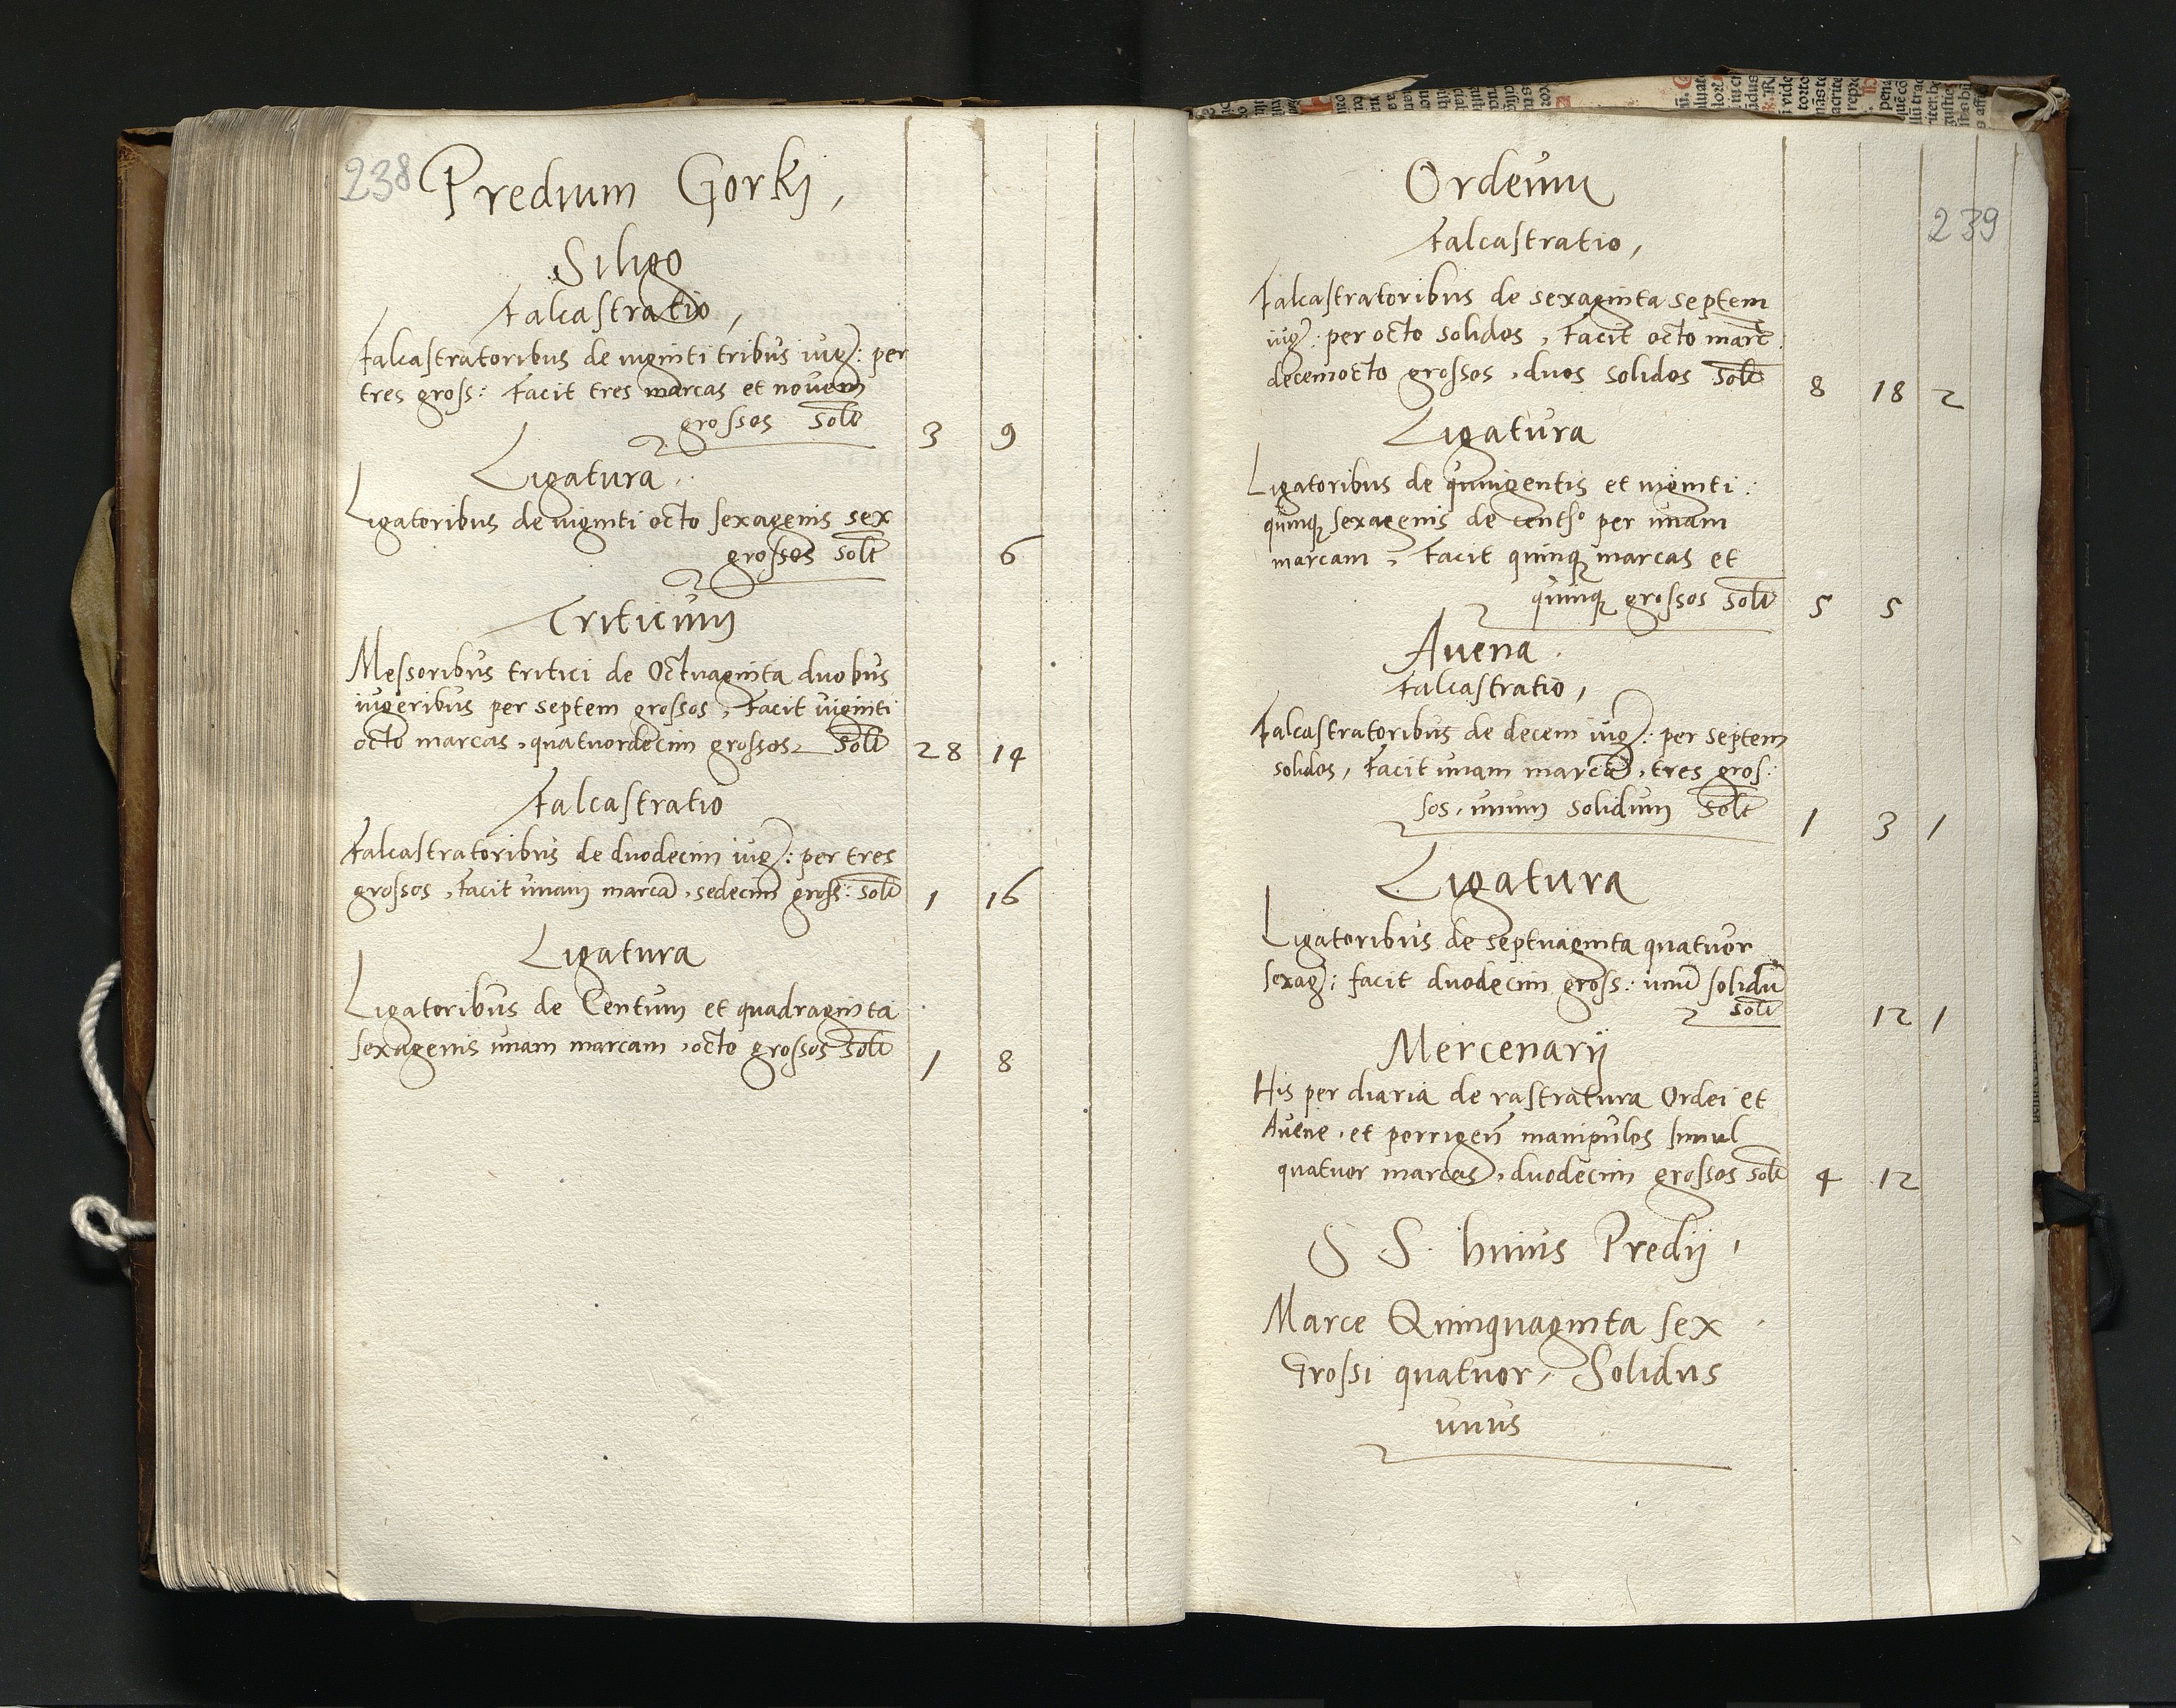 238
Predium Gorkij,
Siligo
Falcastratio,
Falcastratoribus de viginti tribus iug: per
tres gross: Facit tres marcas et novem
grossos sol̄t 3 9
Ligatura.
Ligatoribus de viginti octo sexagenis sex
grossos sol̄t 6
Triticum
Messoribus tritici de Octuaginta duobus
iugeribus per septem grossos, Facit viginti
octo marcas, quatuordecim grossos, sol̄t 28 14
Falcastratio
Falcastratoribus de duodecim iug: per tres
grossos, Facit unam marcā, sedecim gross: sol̄t 1 16
Ligatura
Ligatoribus de Centum et quadraginta
sexagenis unam marcam, octo grossos sol̄t 1 8
239
Ordeum
Falcastratio,
Falcastratoribus de sexaginta septem
iug: per octo solidos, Facit octo marc:
decemocto grossos, duos solidos sol̄t 8 18 2
Ligatura
Ligatoribus de quingentis et viginti:
quinq sexagenis de cent⁰ per unam
marcam, Facit quinq marcas et
quinq grossos sol̄t 5 5
Auena.
Falcastratio,
Falcastratoribus de decem iug: per septem
solidos, Facit unam marcā, tres gros:
sos, unum solidum sol̄t 1 3 1
Ligatura
Ligatoribus de septuaginta quatuor
sexag: facit duodecim gross: unū solidū
sol̄t 12 1
Mercenarij
His per diaria de rastratura Ordei et
Auene, et porrigen̄ manipulos simul
quatuor marcas, duodecim grossos sol̄t 4 12
S S. huius Predij,
Marce Quinquaginta sex
Grossi quatuor, Solidus
unus